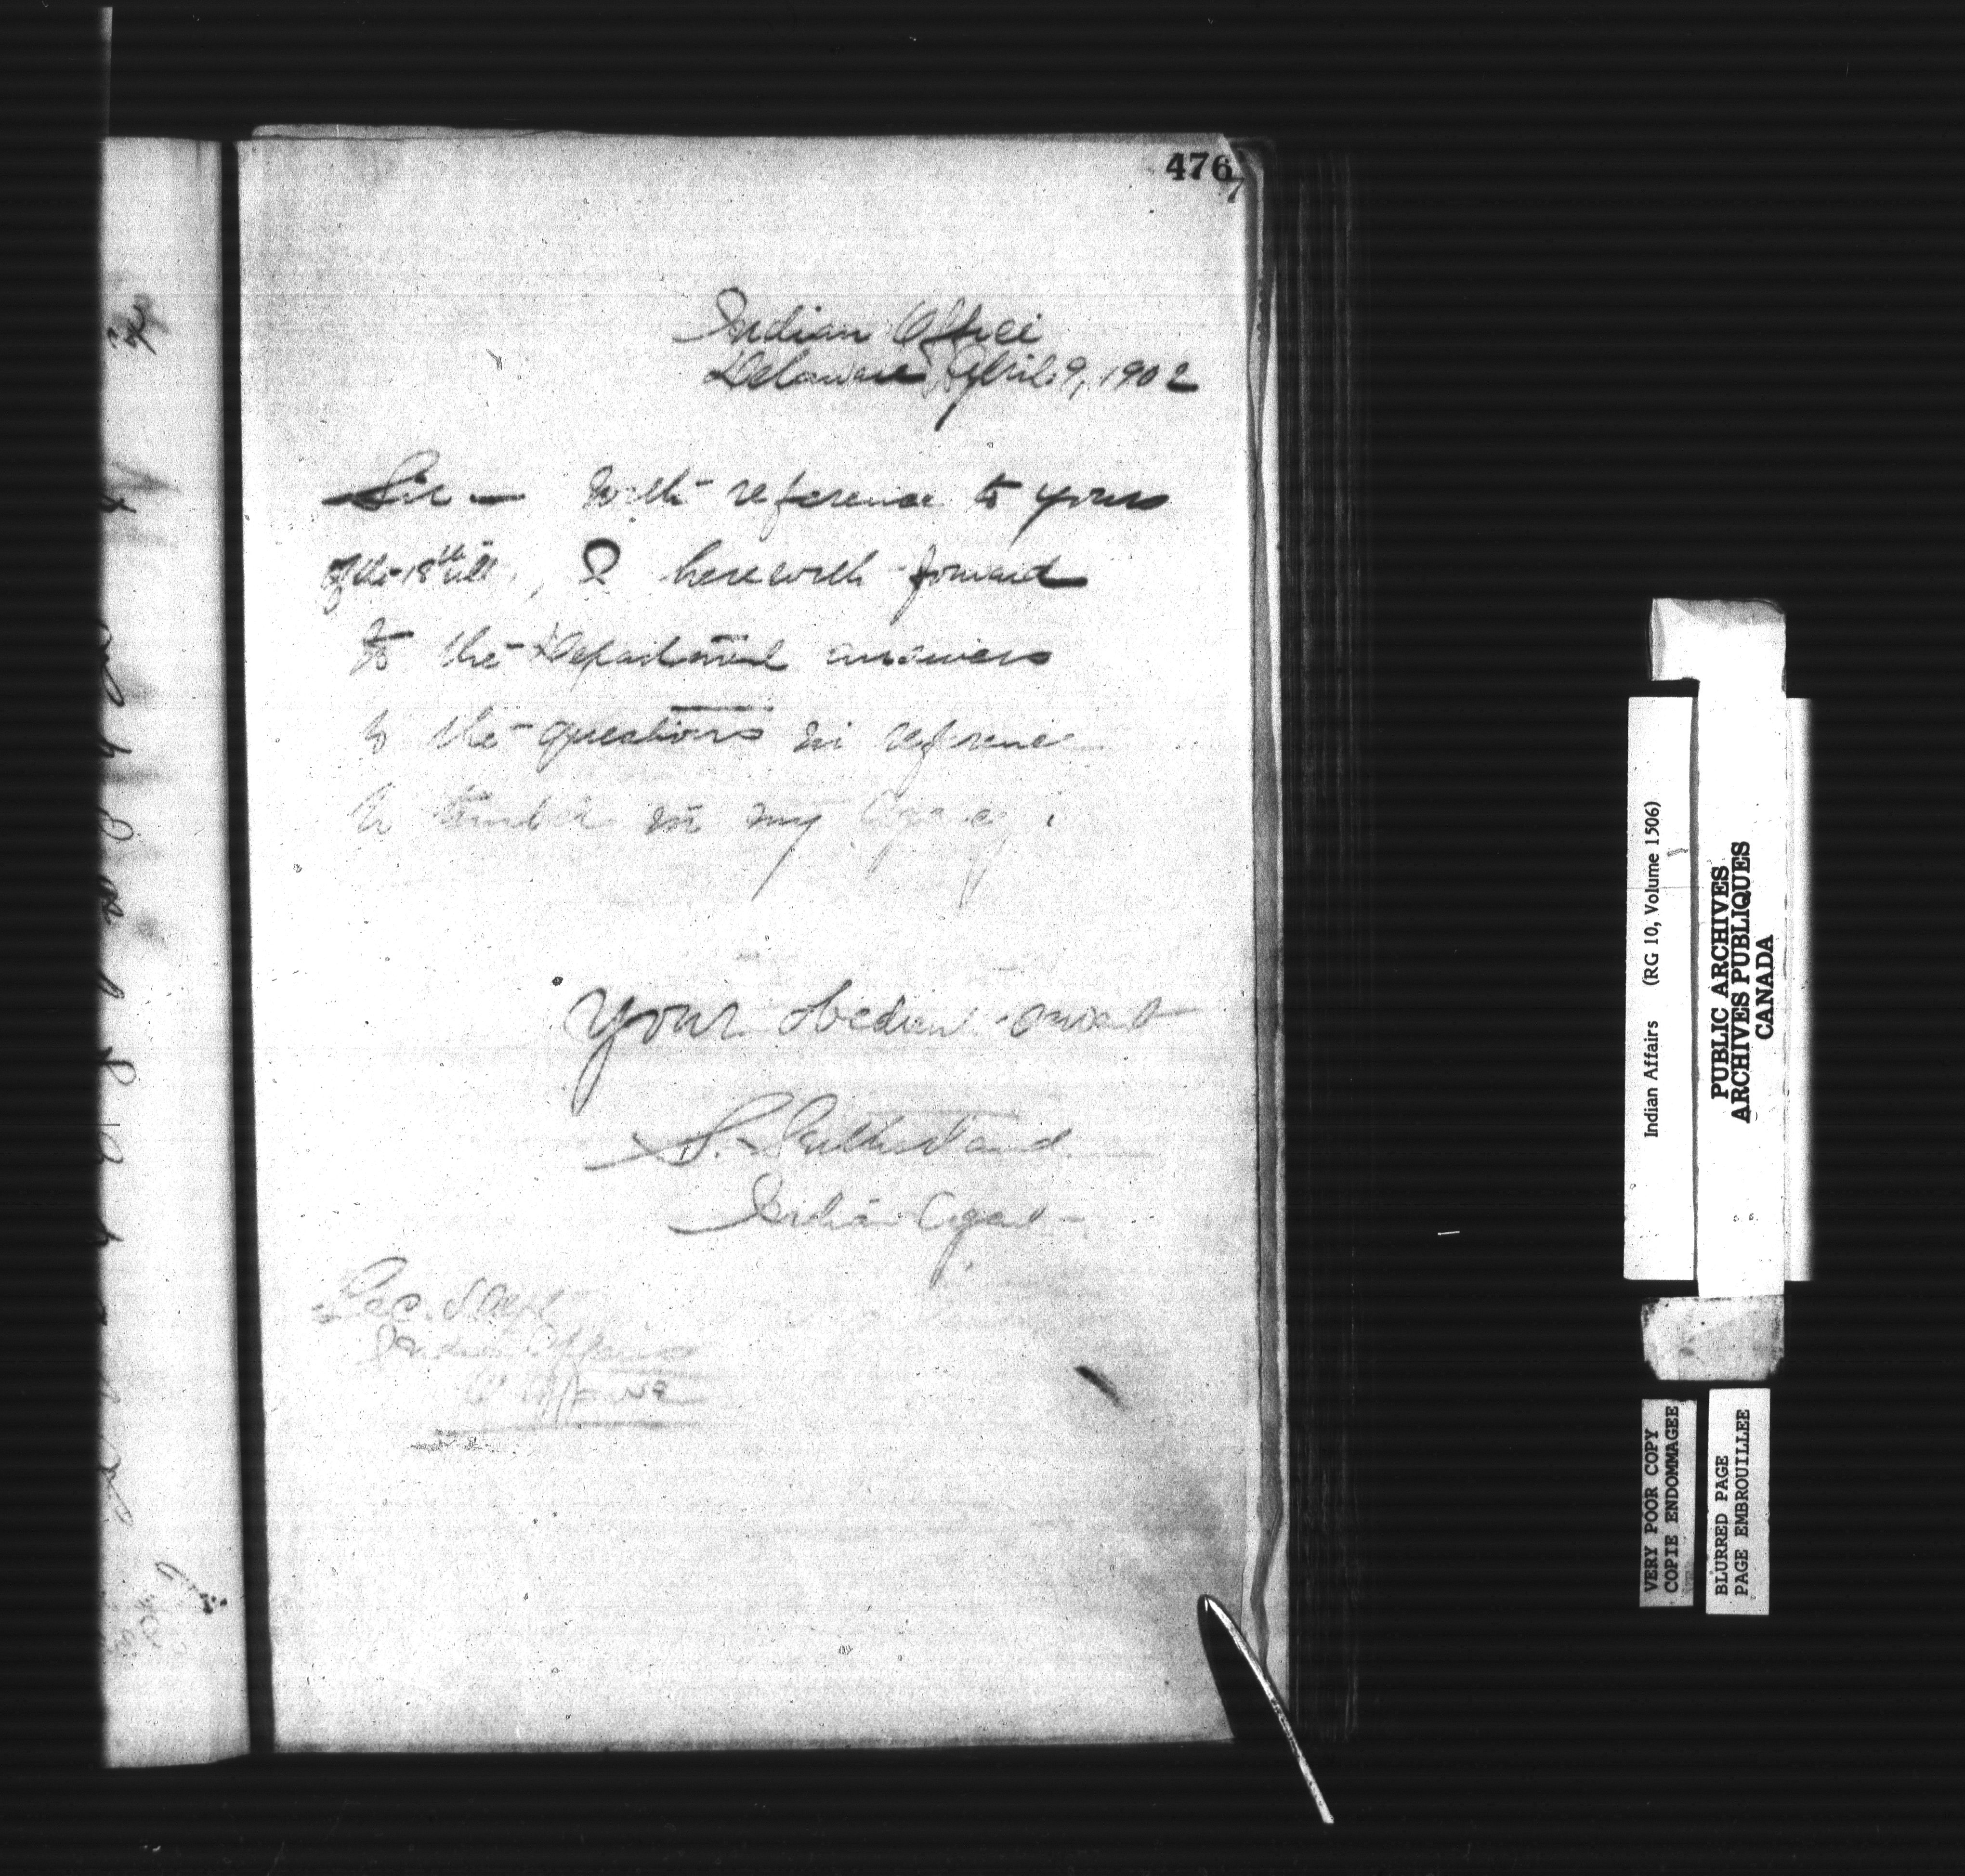 476
7
Indian Office
Delaware, April 9, 1902
Sir — With reference to yours
of the 18th ult., I herewith forward
to the Department answers
to the questions in reference
to timber in my Agency.
Your obedient servant
S. Sutherland
Indian Agent
Sec. Dept
Indian Affairs
Ottawa
Indian Affairs (RG 10, Volume 1506)
PUBLIC ARCHIVES
ARCHIVES PUBLIQUES
CANADA
VERY POOR COPY
COPIE ENDOMMAGEE
BLURRED PAGE
PAGE EMBROUILLEE